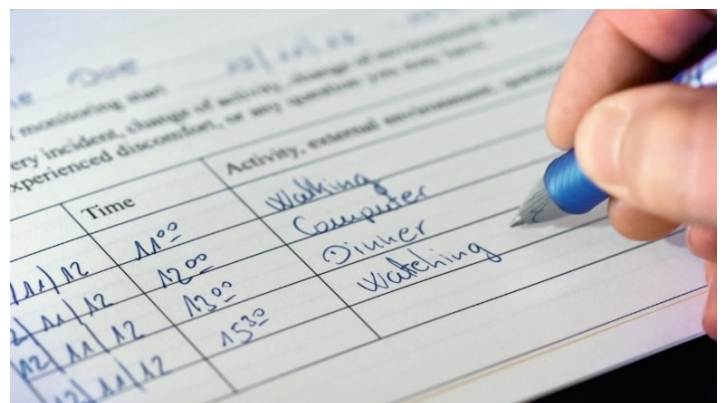 Doe
monitoring start
incident, change of activity, change of environment
experienced discomfort, or any question you may have.
Time Activity, external environment,
11/12 11⁰⁰ Walking
11/12 12⁰⁰ Computer
12/11/12 13⁰⁰ Dinner
12/11/12 15³⁰ Watching